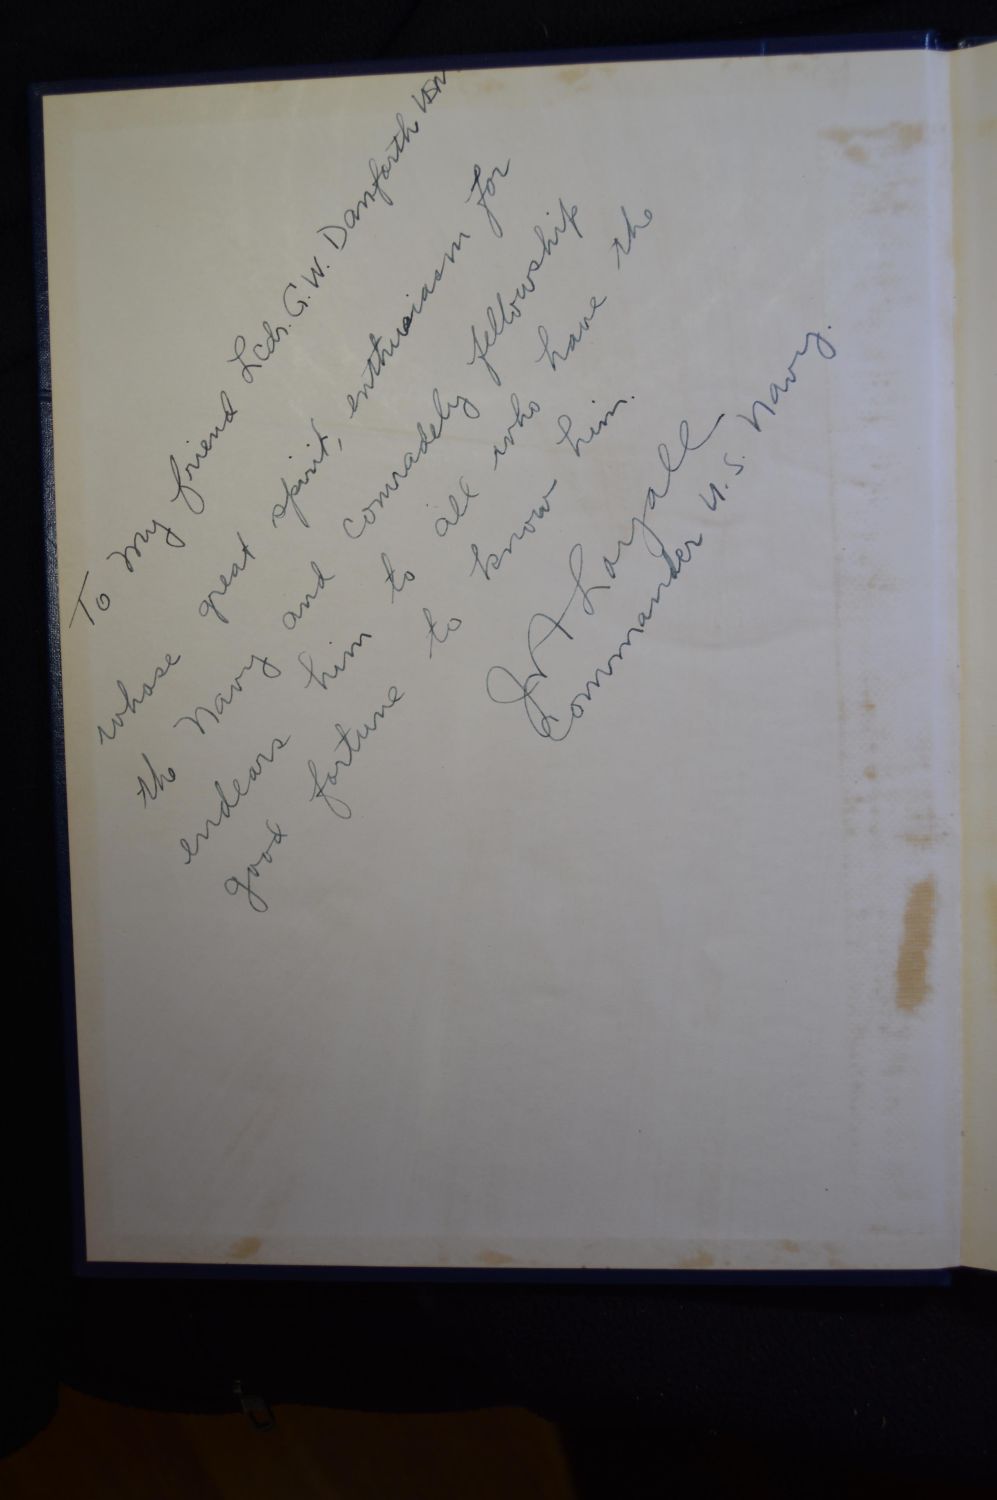 To my friend Lcdr. G.W. Danforth USN
whose great spirit, enthusiasm for
the Navy and comradely fellowship
endears him to all who have the
good fortune to know him.
J A Loryall
Commander U.S. Navy.